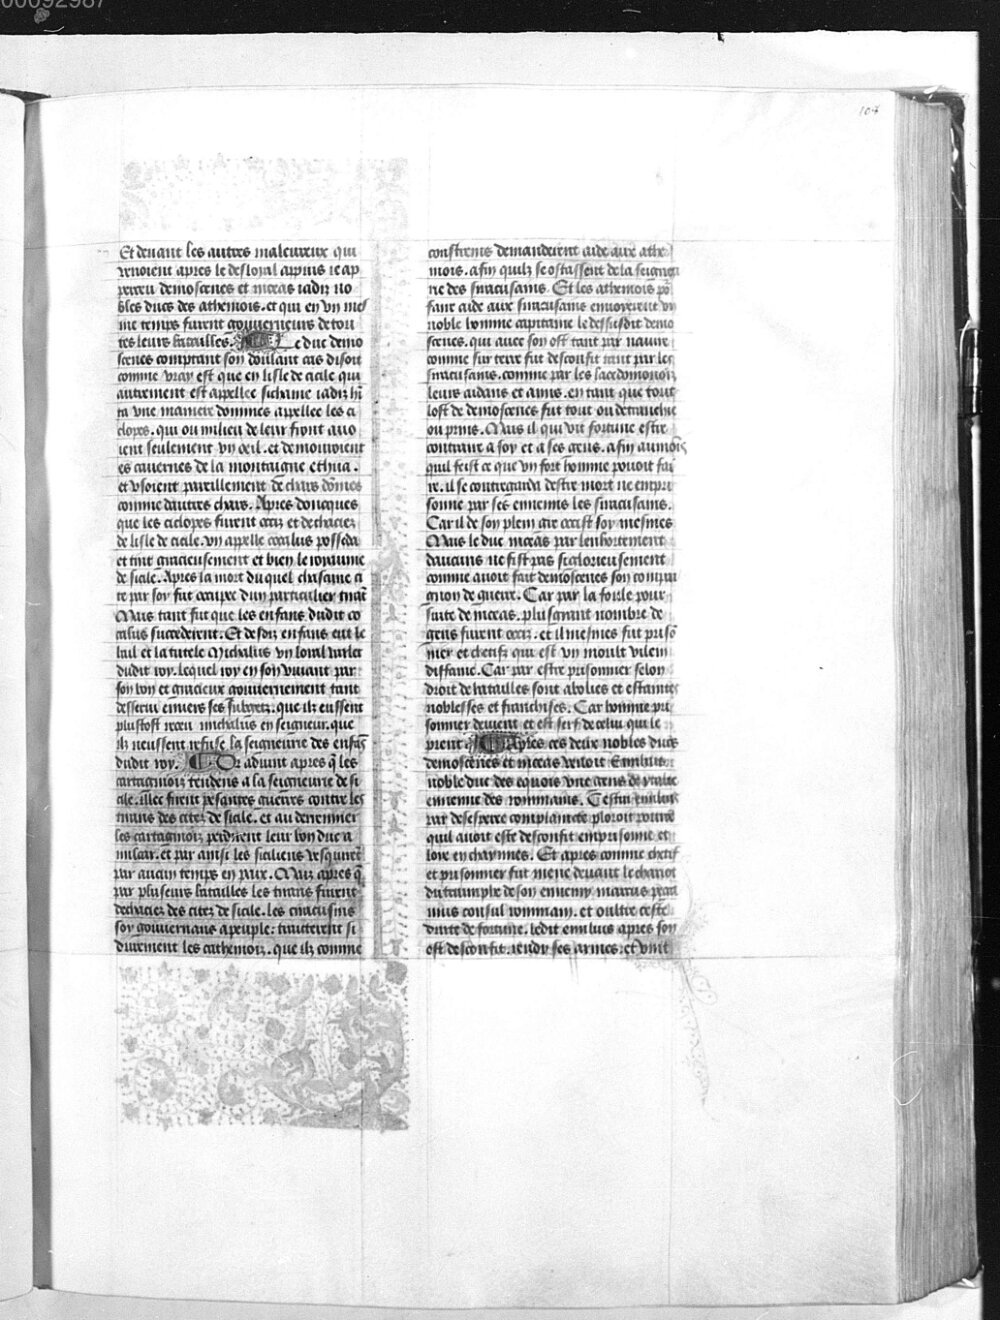 00092987
104
Et deuant les autres maleureux qui
venoient apres le desloyal appius ie ap
perceu demoscenes et niceas iadiz no
bles ducs des atheniois. et qui en vn mes
me temps furent gouuerneurs de tou
tes leurs batailles. Le duc demo
scenes comptant son doulant cas disoit
comme vray est que en lisle de cicile qui
autrement est appellee sichanie iadiz
ta vne maniere dommes appellee les ci
clopes. qui ou milieu de leur front auo
ient seulement vn oeil. et demouroient
es cauernes de la montaigne ethna.
et vsoient pareillement de chars dõmes
comme dautres chars. Apres doncques
que les ciclopes furent occiz et dechaciez
de lisle de cicile. vn appelle cocalus posseda
et tint gracieusement et bien le royaume
de sicile. Apres la mort du quel chascune ci
te par soy fut occupee dun particulier tirãt
Mais tant fut que les enfans dudit co
calus succederent. Et desdiz enfans eut le
bail et la tutele Michalus vn loyal varlet
dudit roy. lequel roy en son viuant par
son bon et gracieux gouuernement tant
desserui enuers ses subgetz. que ilz eussent
plustost receu michalus en seigneur. que
ilz neussent refuse la seigneurie des enfãs
dudit roy. Or aduint apres q̃ les
cartaginoiz tendens a la seigneurie de si
cile. illec firent pesantes guerres contre les
tirans des citez de sicile. et au derrenier
les cartaginoiz perdirent leur bon duc a
milcar. et par ainsi les siciliens vesquirẽt
par aucun temps en paix. Maiz apres q̃
par pluseurs batailles les tirans furent
dechaciez des citez de sicile. les ciracusins
soy gouuernans a peuple: traicterent si
durement les cathenoiz. que ilz comme
constrains demanderent aide aux athe
niois. afin quilz se ostassent de la seigneu
rie des siracusains. Et les atheniois põ
faire aide aux siracusains enuoyerent vn
noble homme capitaine le dessusdit demo
scenes. qui auec son ost tant par nauire
comme sur terre fut desconfit tant par les
siracusains. comme par les lacedomonoiz
leurs aidans et amis. en tant que tout
lost de demoscenes fut tout ou detranchie
ou prins. Mais il qui vit fortune estre
contraire a soy et a ses gens. afin aumoĩs
quil feist ce que vn fort homme pouoit fai
re. il se contregarda destre mort ne empri
sonne par ses ennemis les siracusains.
Car il de son plein gre occist soy mesmes
Mais le duc niceas par lenhortement
daucuns ne fist pas si glorieusement
comme auoit fait demoscenes son compai
gnon de guerre. Car par la foule pour
suite de niceas. plus grant nombre de
gens furent occiz. et il mesmes fut prisõ
nier et chetif. qui est vn moult vilein
diffame. Car par estre prisonnier selon
droit de batailles sont abolies et estaintes
noblesses et franchises. Car homme pri
sonnier deuient et est serf de celui qui le
prent Apres ces deux nobles ducs
demoscenes et niceas venoit Emilius
noble duc des equois vne gens de ytalie
ennemie des rommains. Cestui emilius
par desesperee complaincte ploroit pource
quil auoit este desconfit emprisonne et
loye en chaynnes. Et apres comme chetif
et prisonnier fut mene deuant le chariot
du triumphe de son ennemy marcus
mus consul rommain. et oultre ceste
durte de fortune. ledit emilius apres son
ost desconfit. rendy ses armes. et vint